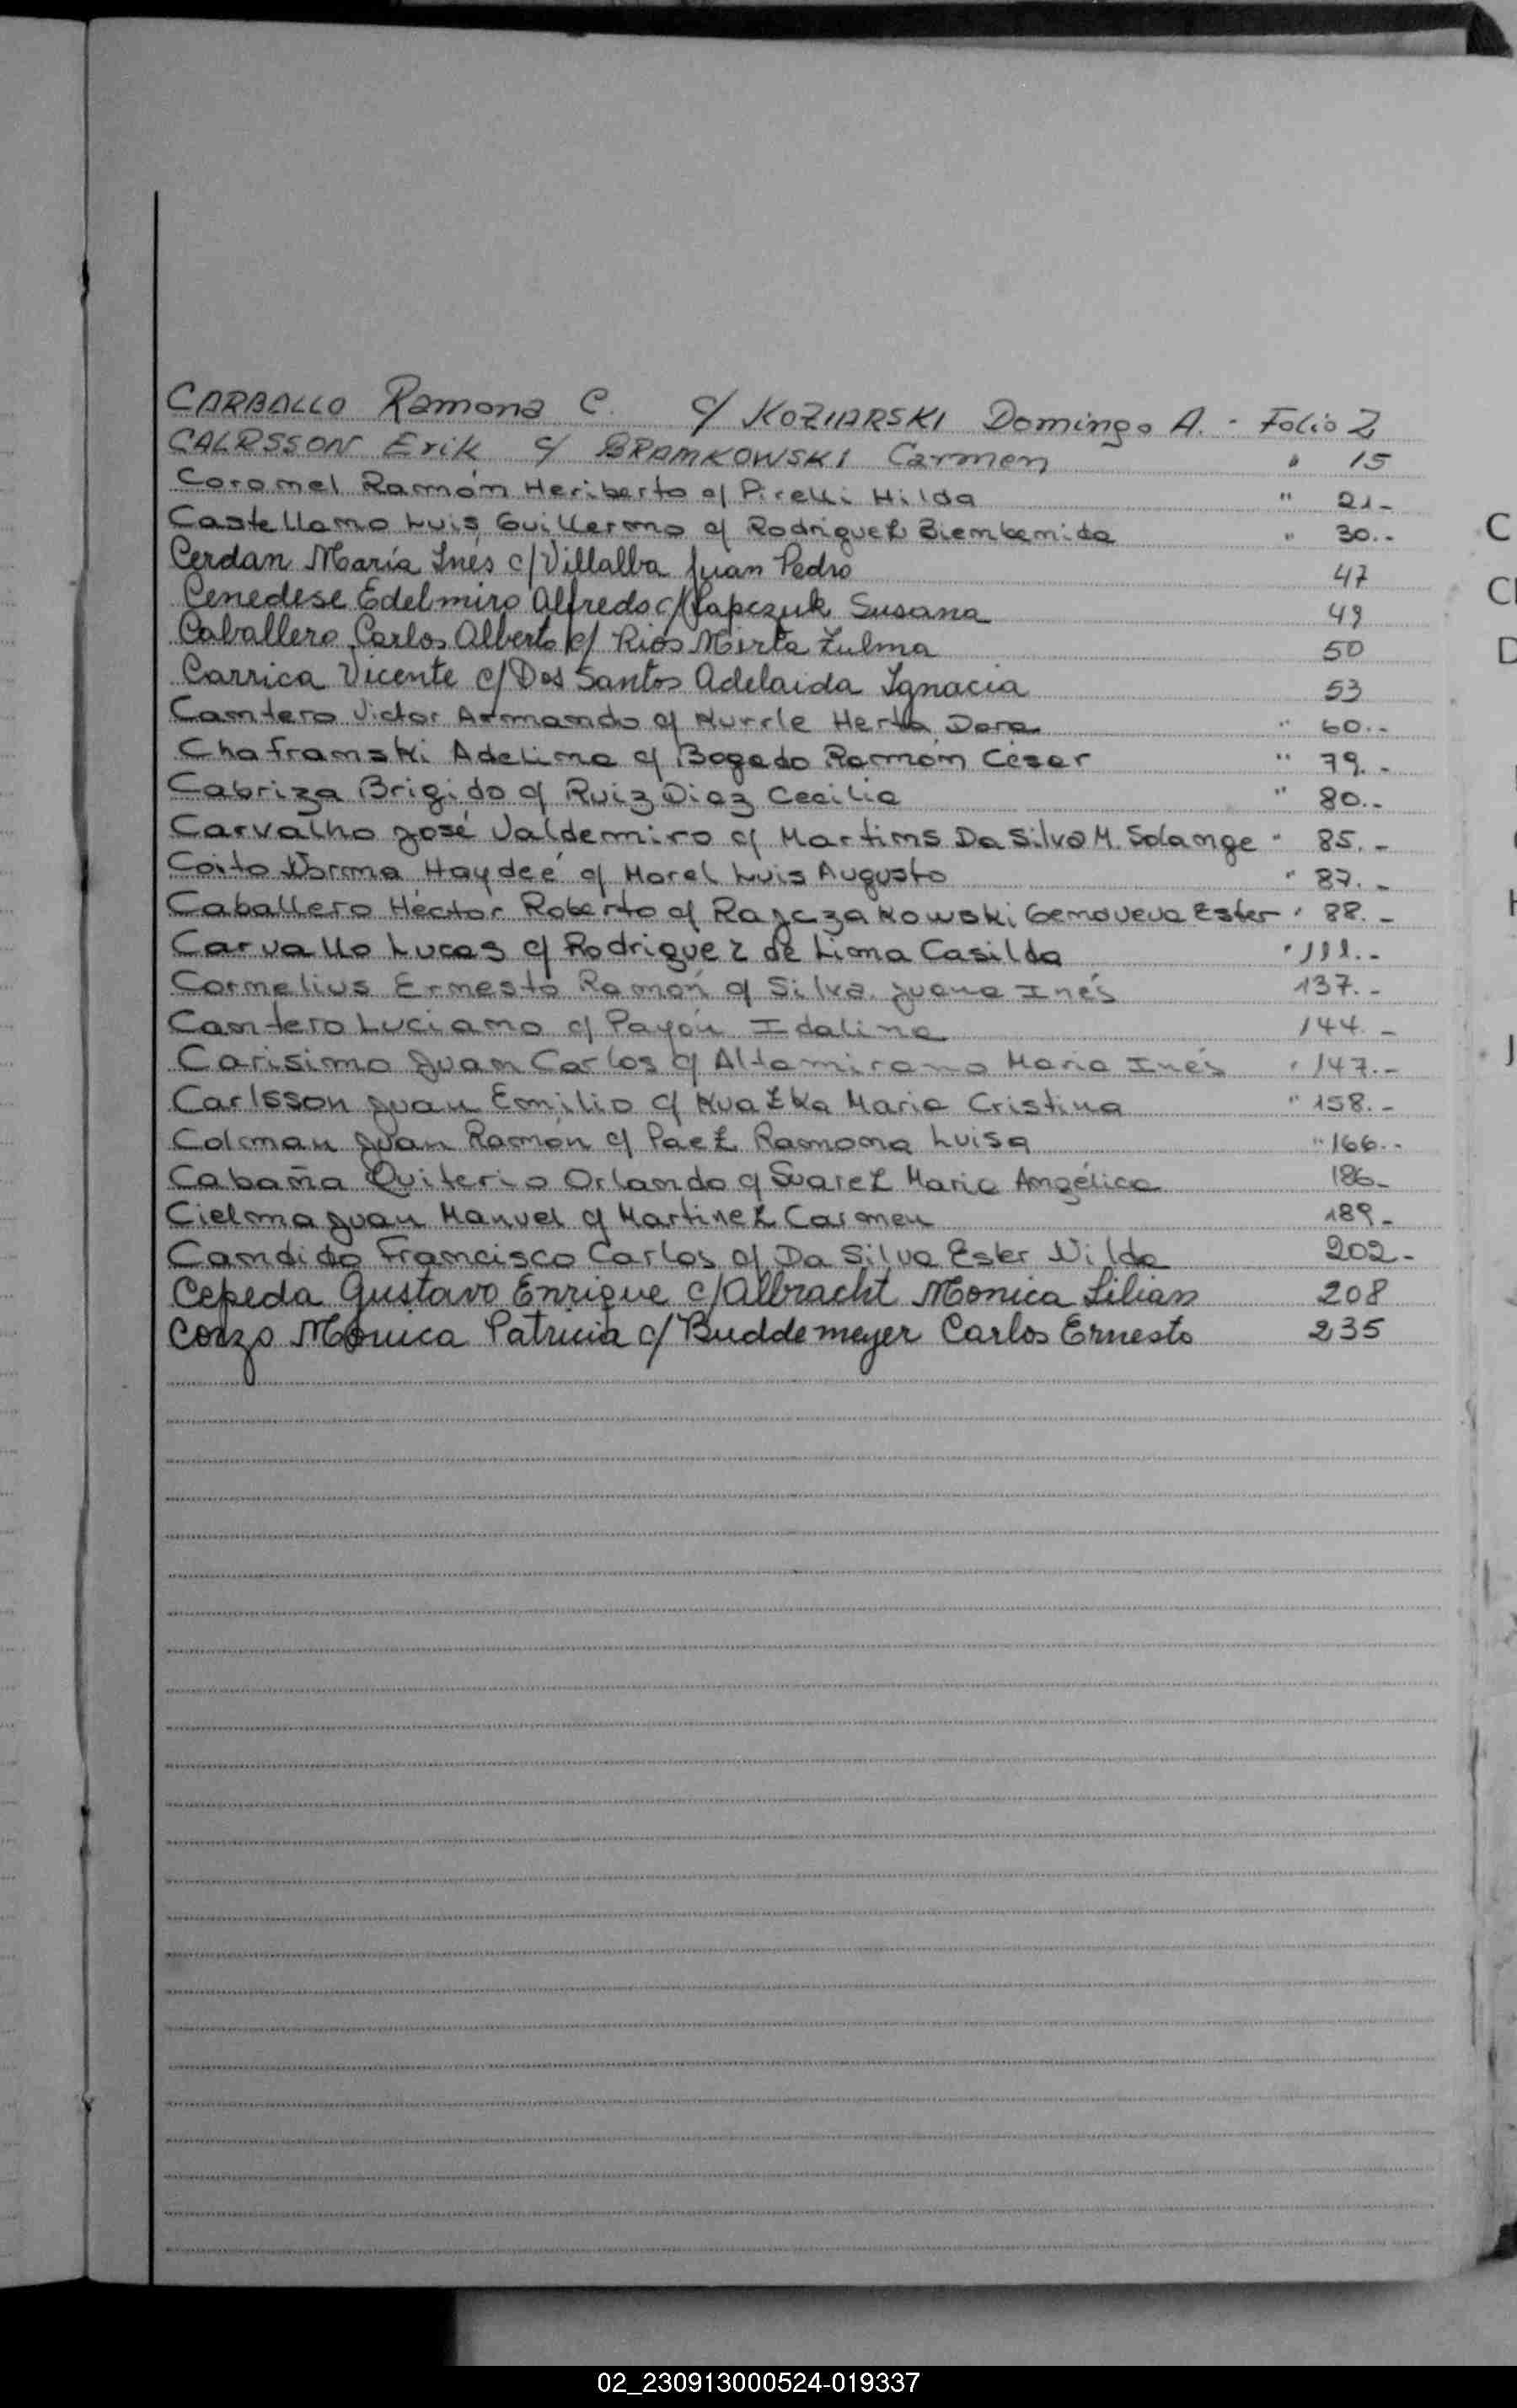 CARBALLO Ramona C. c/ KOZIARSKI Domingo A. - Folio 2
CALRSSON Erik c/ BRAMKOWSKI Carmen " 15
Coronel Ramón Heriberto c/ Pirelli Hilda " 21-
Castellano Luis Guillermo c/ Rodriguez Bienbenida " 30.-
Cerdan María Inés c/ Villalba Juan Pedro 47
Cenedese Edelmiro Alfredo c/ Klapczuk Susana 49
Caballero Carlos Alberto c/ Rios Mirta Zulma 50
Carrica Vicente c/ Dos Santos Adelaida Ignacia 53
Cantero Victor Armando c/ Kurrle Herta Dora " 60.-
Chaframski Adelina c/ Bogado Ramón César " 79.-
Cabriza Brigido c/ Ruiz Diaz Cecilia " 80.-
Carvalho José Valdemiro c/ Martins Da Silva M. Solange " 85.-
Coito Norma Haydeé c/ Morel Luis Augusto " 87.-
Caballero Héctor Roberto c/ Rajczakowski Genoveva Ester " 88.-
Carvallo Lucas c/ Rodriguez de Lima Casilda " 111.-
Cornelius Ernesto Ramón c/ Silva Juana Inés 137.-
Cantero Luciano c/ Payón Idalina 144.-
Carisimo Juan Carlos c/ Altamirano Maria Inés " 147.-
Carlsson Juan Emilio c/ Kuazka Maria Cristina " 158.-
Colman Juan Ramón c/ Paez Ramona Luisa " 166.-
Cabaña Quiterio Orlando c/ Suarez Maria Angélica 186-
Cielma Juan Manuel c/ Martinez Carmen 189-
Candido Francisco Carlos c/ Da Silva Ester Nilda 202-
Cepeda Gustavo Enrique c/ Albracht Monica Lilian 208
Corzo Mónica Patricia c/ Buddemeyer Carlos Ernesto 235
C
D
H
J
02_230913000524-019337